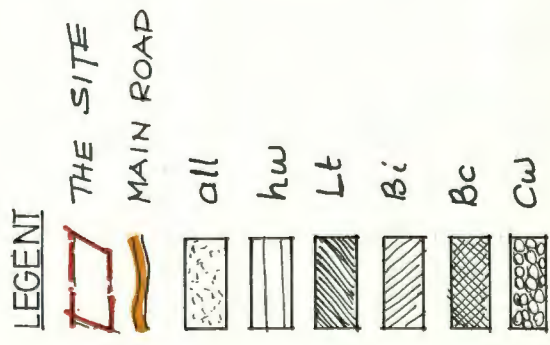 LEGENT
THE SITE
MAIN ROAD
all
hw
Lt
Bi
Bc
Cw